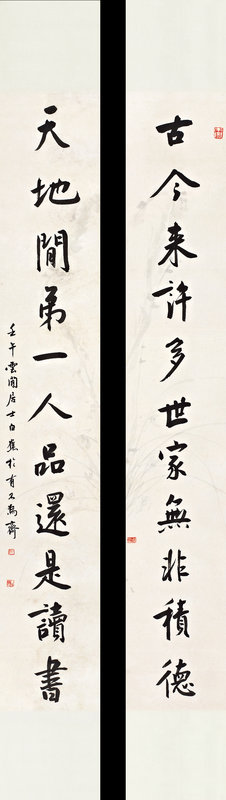 古今来許多世家無非積德
天地間第一人品還是讀書
壬午雲間居士白蕉於有不爲齋